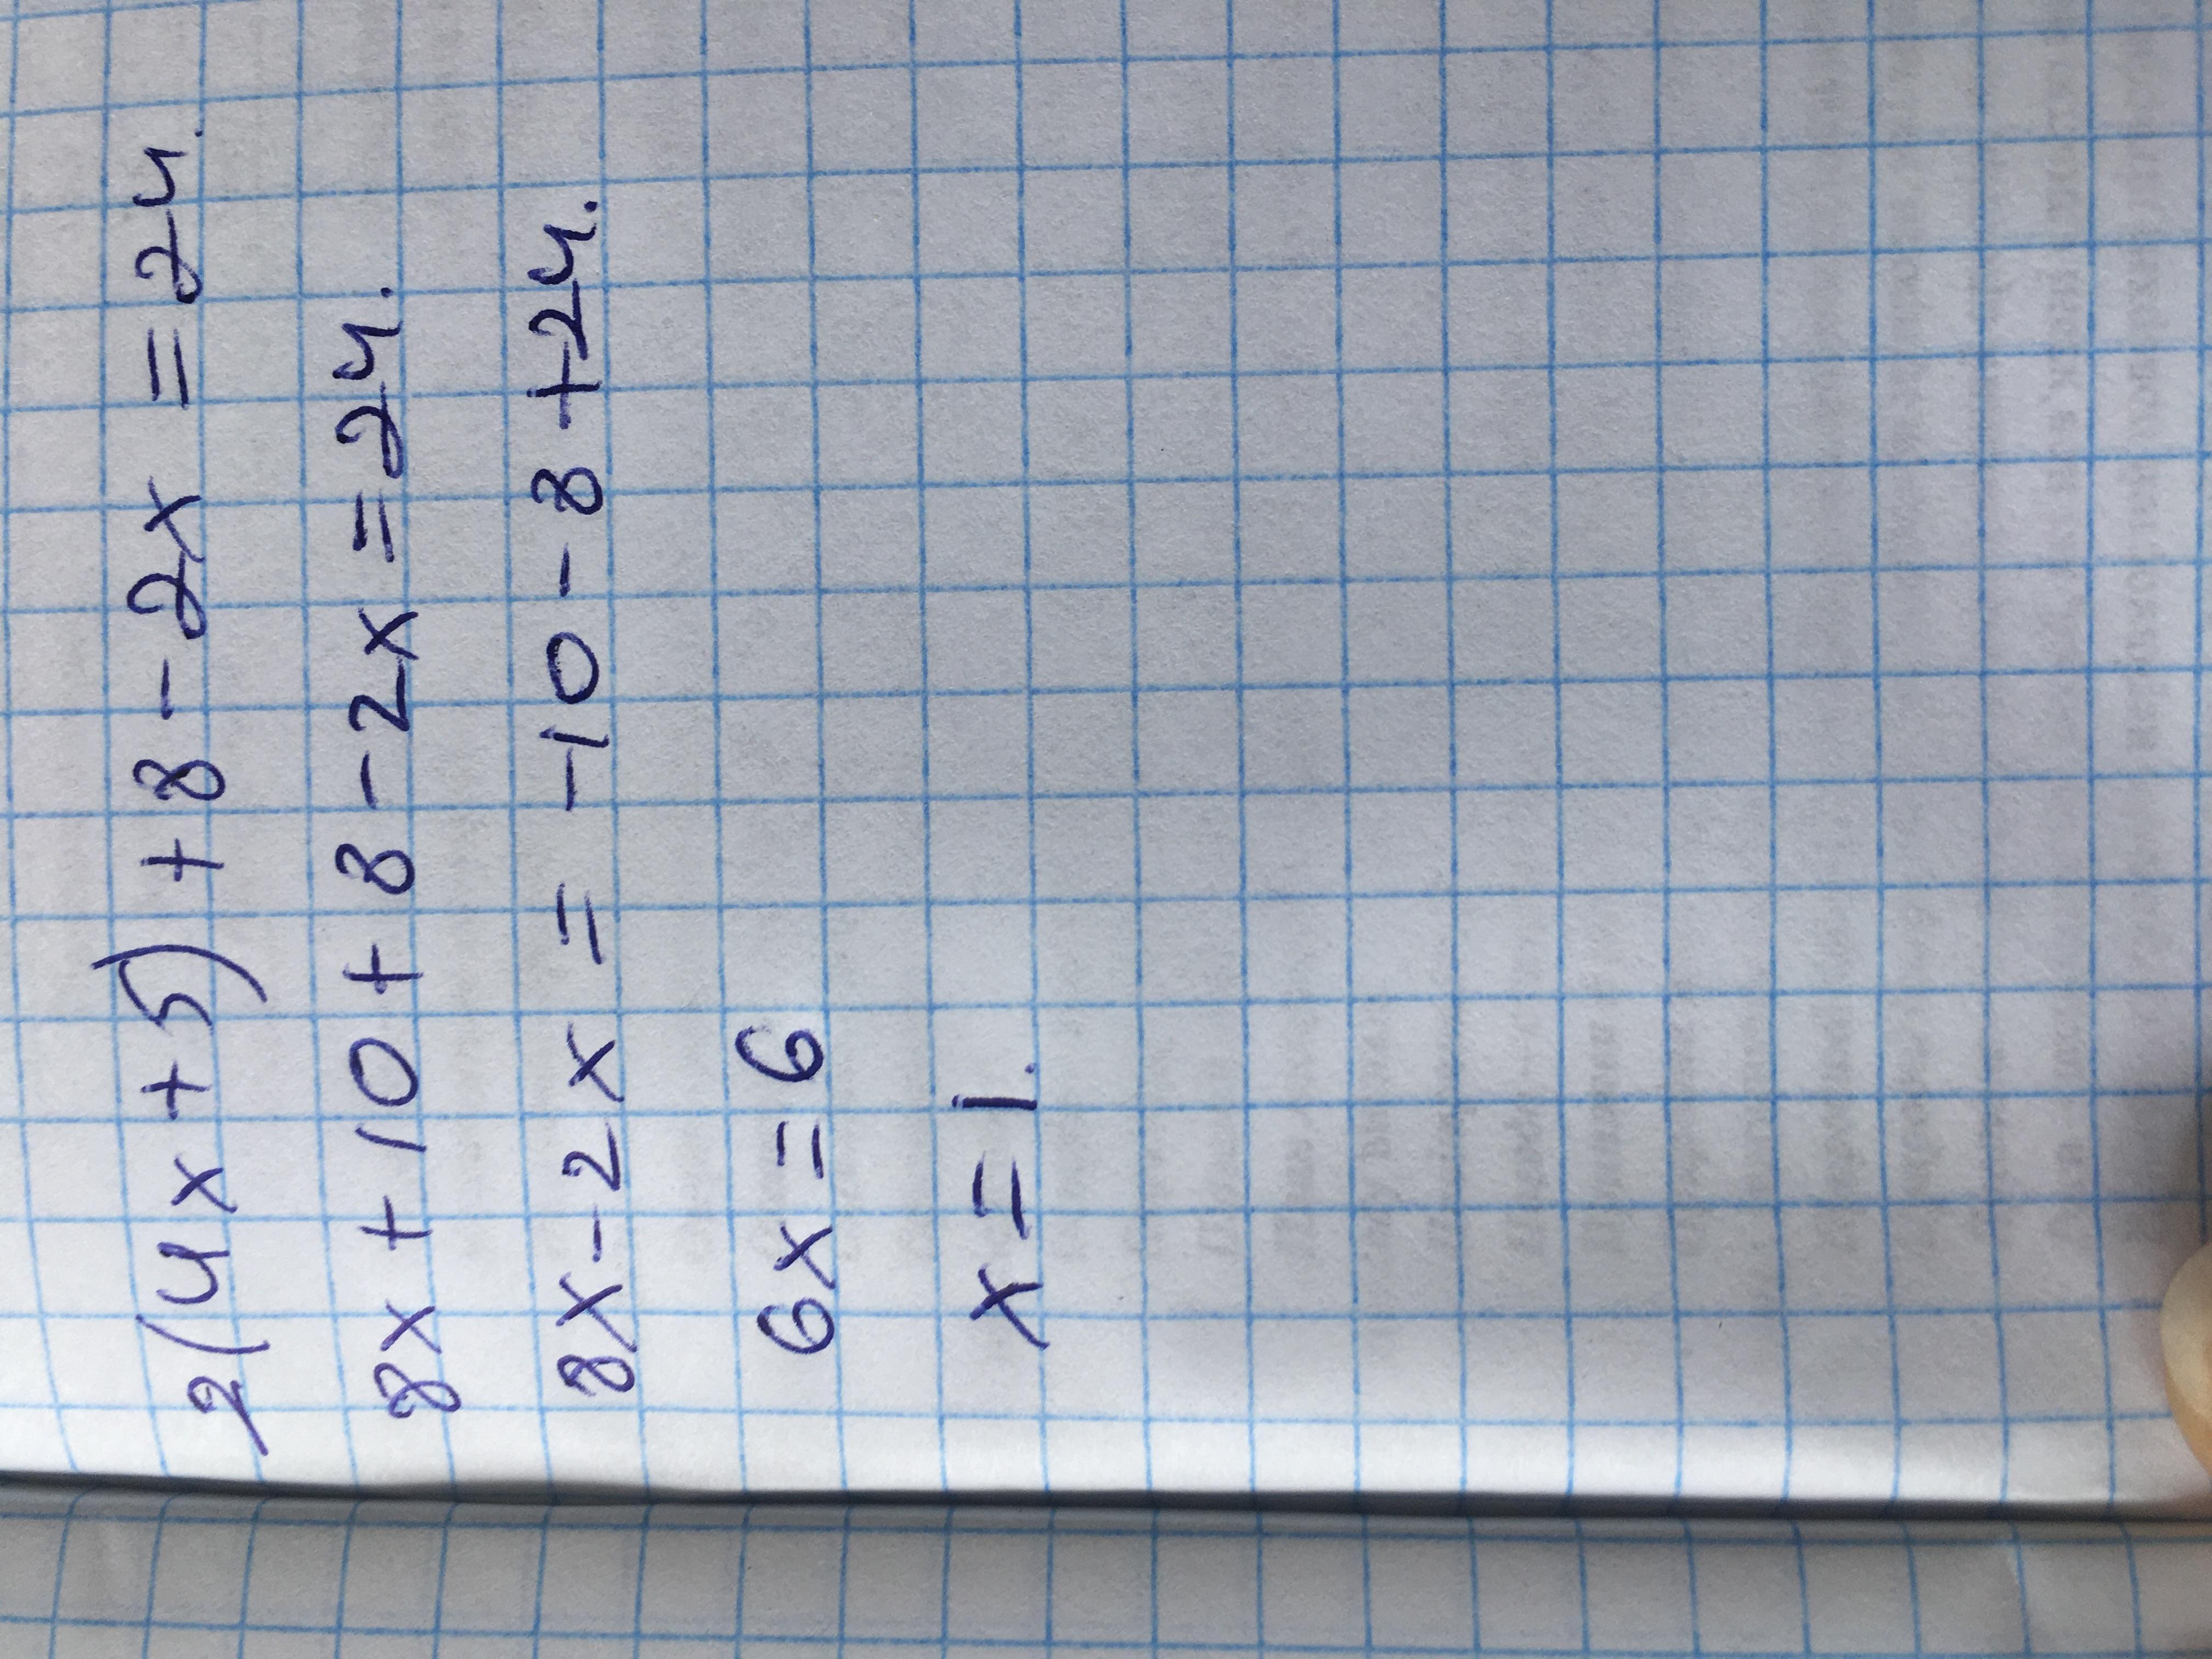 2(4x+5)+8-2x=24.
8x+10+8-2x=24.
8x-2x=-10-8+24.
6x=6
x=1.